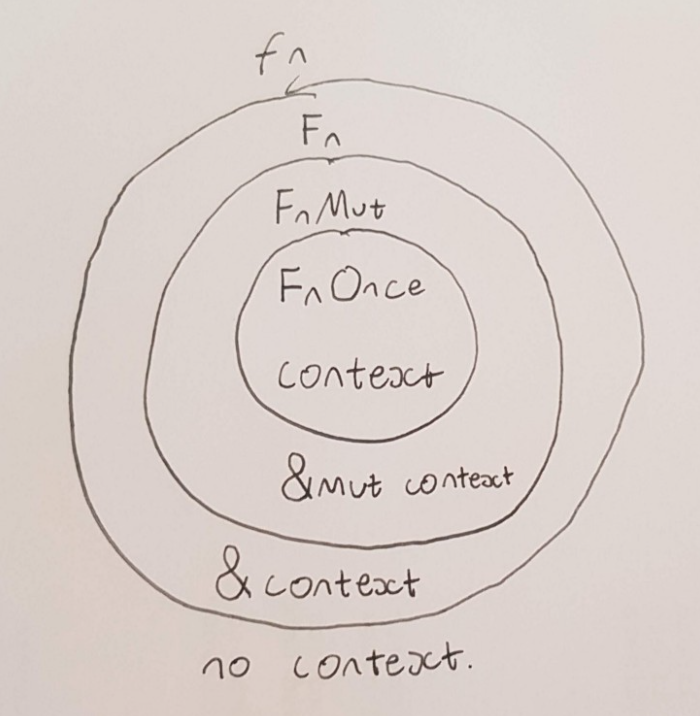 fn
Fn
FnMut
FnOnce
context
&mut context
& context
no context.